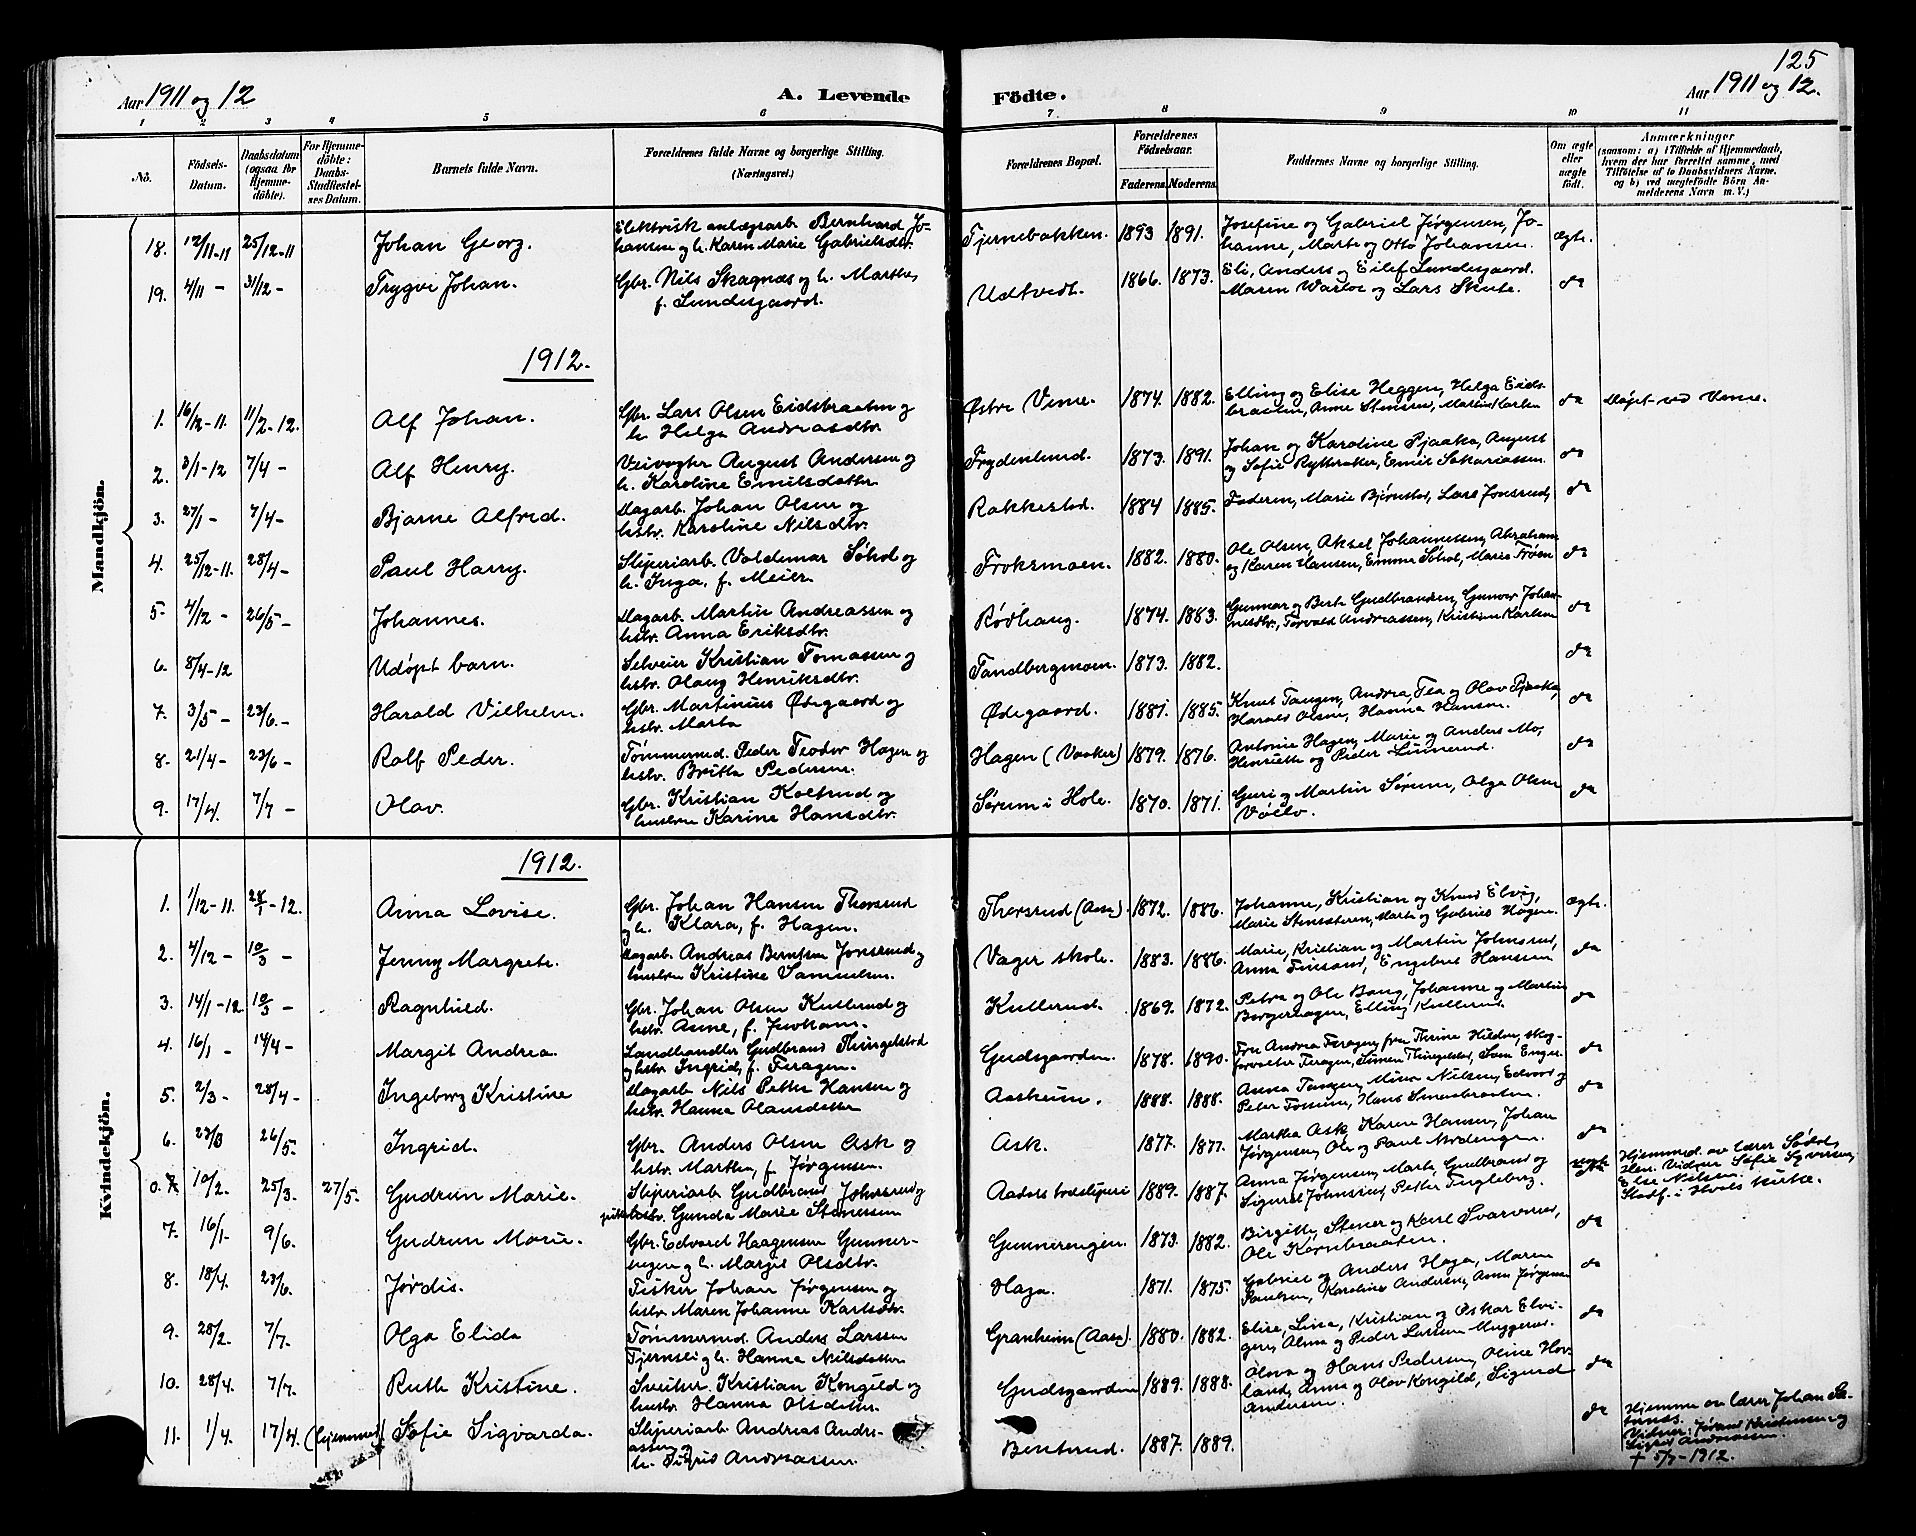 125
Aar 1911 og 12
A. Levende
Födte.
Aar 1911 og 12.
1 2 3 4 5 6 7 8 9 10 11
No.
Födsels-Datum.
Daabsdatum (ogsaa for Hjemme-döbte).
For Hjemme-döbte: Daabs-Stadfæstelses Datum.
Barnets fulde Navn.
Forældrenes fulde Navne og borgerlige Stilling.
(Næringsvei.)
Forældrenes Bopæl.
Forældrenes Födselsaar.
Faderens. Moderens.
Faddernes Navne og borgerlige Stilling.
Om ægte eller uægte födt.
Anmærkninger
(saasom: a) i Tilfælde af Hjemmedaab, hvem der har forrettet samme, med Tilföielse af to Daabsvidners Navne, og b) ved uægtefödte Börn Anmelderens Navn m. V.)
Mandkjön.
18. 12/11-11 25/12-11 Johan Georg. Elektrisk anlægsarb. Bernhard Jo-
hansen og h. Karen Marie Gabrielsdtr. Tjernsbakken. 1893 1891. Josefine og Gabriel Jørgensen, Jo-
hanne, Marte og Otto Johansen. ægte.
19. 4/11 - 31/12 - Trygve Johan. Gbr. Nils Skagnæs og h. Marthe,
f. Lundesgaard. Udtvedt. 1866. 1873. Eli, Anders og Eilef Lundesgaard.
Maren Warloe og Lars Skute. do
1912.
1. 16/12-11. 11/2-12. Alf Johan. Gbr. Lars Olsen Eidsbraaten og
h. Helga Andreasdtr. Østre Veme. 1874. 1882. Elling og Elise Heggen, Helga Eids-
braaten, Anne Stensrud, Martin Karlsen do Døpt ved Veme.
2. 3/1-12 7/4 - Alf Henry. Veivogter August Andersen og
h. Karoline Emilsdatter Frydenlund. 1873. 1891. Johan og Karoline Pjaaka, August
og Sofie Rytteraker, Emil Sakariassen. do
3. 27/1 - 7/4 - Bjarne Alfred. Dagarb. Johan Olsen og
hstr. Karoline Nilsdtr. Rakkestad. 1884 1885. Faderen, Marie Bjørnstad, Lars Jonsrud, do
4. 25/12-11. 28/4 - Paul Harry. Sliperiarb. Valdemar Søhol og
h. Inga, f. Meier. Froksmoen. 1882. 1880. Ole Olsen, Aksel Johannessen, Abraham
og Karen Hansen, Emma Søhol, Marie Frøen do
5. 4/12 - 26/5 - Johannes. Dagarb. Martin Andreassen og
hstr. Anna Eriksdtr. Rødhaug. 1874. 1883. Gunnar og Berte Gudbrandsen, Gunvor Johan-
nesdtr., Torvald Andreassen, Kristian Karlsen do
6. 8/4-12 Udøpt barn. Selveier Kristian Tomassen og
hstr. Olaug Henriksdtr. Tandbergmoen. 1873. 1882. do
7. 3/5 - 23/6 - Harald Vilhelm. Gbr. Martinius Ødegaard og
hstr. Marta Ødegaard. 1881. 1885. Knut Tangen, Andrea, Tea og Olav Pjaaka,
Harald Olsen, Hanna Hansen. do
8. 21/4 - 23/6 - Rolf Peder. Tømmermd. Peder Teodor Hagen og
hstr. Britta Pedersen. Hagen (Vaaker) 1879. 1876. Antonie Hagen, Marie og Anders Mo,
Henriette og Peder Linnerud. do
9. 17/4. 7/7 - Olav. Gbr. Kristian Kolsrud og
hustru Karine Hansdtr. Sørum i Hole. 1870. 1871. Guri og Martin Sørum, Olga Olsen
Vøllo. do
Kvindekjön.
1912.
1. 1/12-11. 28/1-12. Anna Lovise. Gbr. Johan Hansen Thorsrud
og h. Klara, f. Hagen. Thorsrud (Aasa) 1872. 1886. Johanne, Kristian og Knud Elvig,
Marie Stensæteren, Marte og Gabriel Hagen. ægte.
2. 4/12 - 10/3 - Jenny Margrete. Dagarb. Andreas Berntsen Jonsrud og
hustru Kristine Samuelsen. Vager skole. 1883. 1886. Marie, Kristian og Martin Johnsrud,
Anna Finsand, Engebret Hanssen do
3. 14/1-12 10/3 - Ragnhild. Gbr. Johan Olsen Kullerud og
hstr. Anne, f. Kullerud. 1869. 1872. Petra og Ole Bang, Johanne og Martin
Borgerhagen, Elling Kullerud do
4. 16/1 - 14/4 - Margit Andrea. Landhandler Gudbrand Thingelstad
og hstr. Ingrid, f. Feragen. Gudsgaarden. 1878. 1890. Fru Andrea Feragen, fru Thrine Hilden, skog-
forvalter Feragen, Simen Thingelstad, Sam Enger do
5. 2/3 - 28/4 - Ingeborg Kristine Dagarb Nils Petter Hansen og
hstr. Hanna Olausdatter Aasheim. 1888. 1888. Anna Tangen, Mina Nilsen, Edvard og
Peter Fossum, Hans Smedbraaten. do
6. 23/3 26/5. Ingrid. Gbr. Anders Olsen Ask og
hstr. Marthea, f. Jørgensen. Ask. 1877. 1877. Martha Ask, Karen Hansen, Johan
Jørgensen, Ole og Paul Moldengen. do
0.7 10/2. 25/3. 27/5. Gudrun Marie. Sliperiarb Gudbrand Johnsrud og
pike Gunda Marie Stenersen Aadals træsliperi 1889. 1887. Anna Jørgensen, Marte, Gudbrand og
Sigurd Johnsrud, Petter Fingleborg. uægte Hjemmed. av lærer Sødal,
Hen. Vidner Sofie Syversen,
Else Nilsen.
Stadf. i Hvals kirke.
7. 16/1. 9/6. Gudrun Marie. Gbr. Edvard Haagensen Gunner-
engen og h. Margit Olsdtr. Gunnerengen. 1873. 1882. Birgitte, Stener og Karl Svarverud,
Ole Kornbraaten. do
8. 18/4. 23/6. Jørdis. Fisker Johan Jørgensen og
hstr. Maren Johanne Karlsdtr. Haga. 1871. 1875. Gabriel og Anders Haga, Maren
Paulsen, Karoline Andersen, Anna Jørgensen do
9. 28/2. 7/7. Olga Elida Tømmermd. Anders Larssen
Tjernsli og h. Hanna Nilsdatter Granheim (Aasa). 1880. 1882. Elise, Lina, Kristian og Oskar Elvi-
gen, Alma og Peder Larssen Muggerud. do
10. 28/4. 7/7. Ruth Kristine. Sveitser. Kristian Kongild og
hustru Hanna Olsdatter. Gudsgaarden 1889. 1888. Olava og Hans Pedersen, Oline Hov-
land, Anna og Olav Kongild, Sigurd
Andersen. do
11. 1/4. 17/4. (hjemmet) Sofie Sigvarda. Sliperiarb Andreas Andre-
assen og
h. Sigrid Andreassen Benterud. 1887. 1889. do Hjemme av lærer Johan Sæ-
ternæs.
Vidner: Jøran Kristensen og
Sigrid Andreassen.
† 5/7-1912.